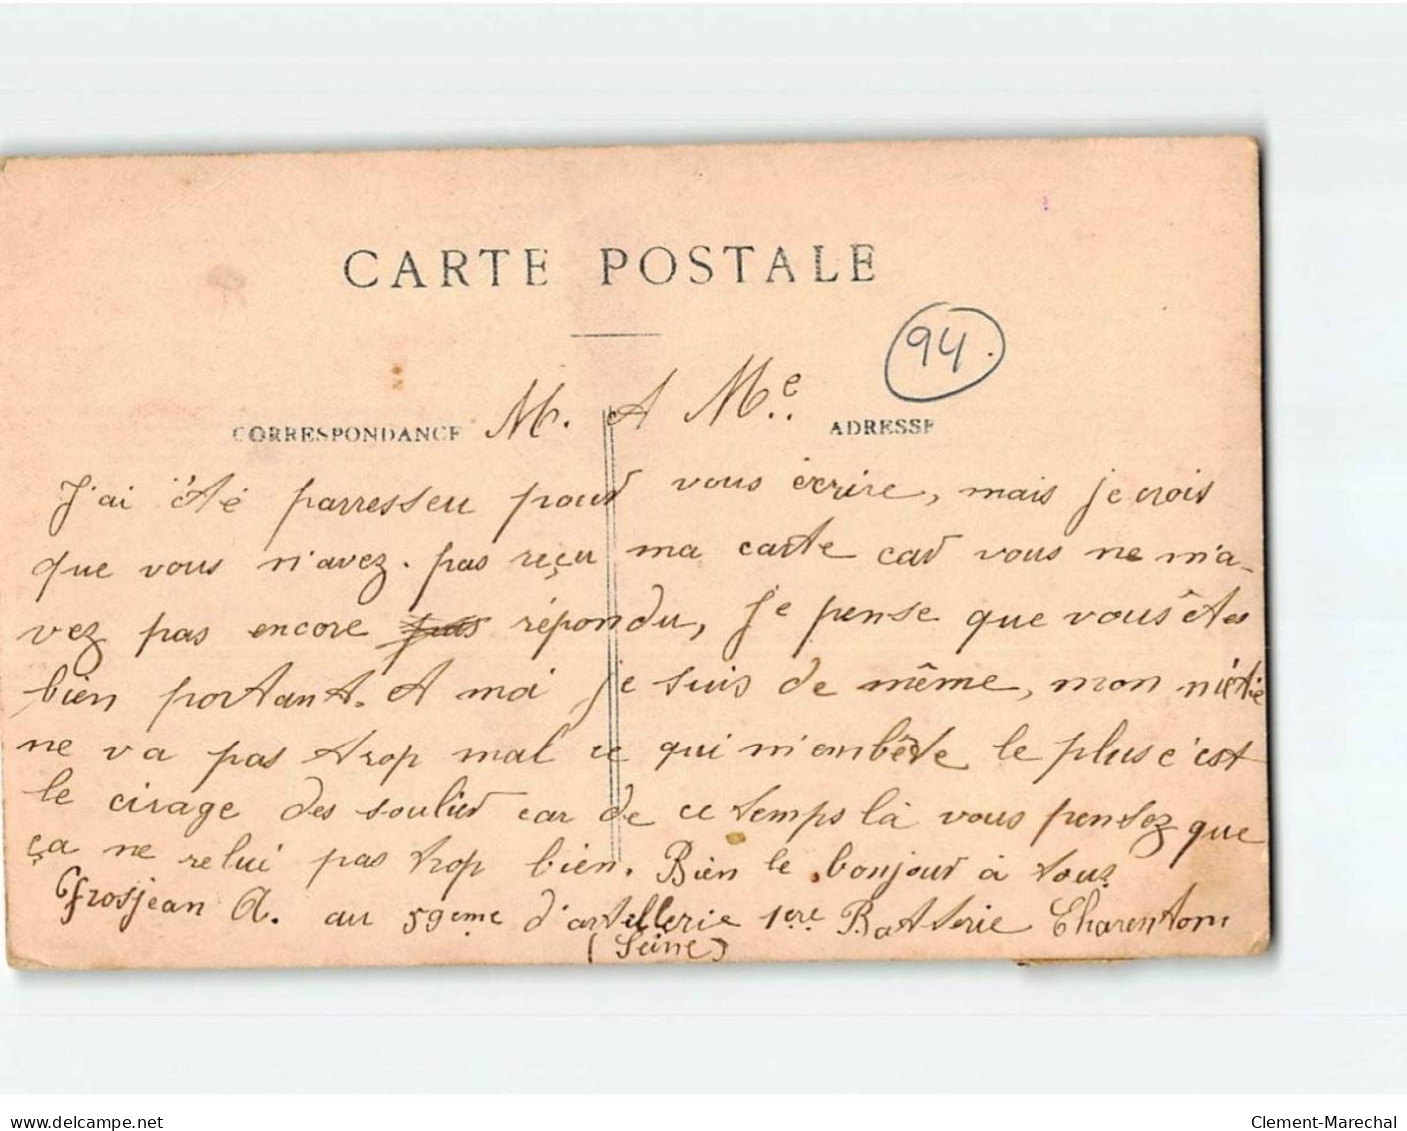 CARTE POSTALE
94.
CORRESPONDANCE M. A Me. ADRESSE
J'ai été parresseu pour vous écrire, mais je crois
que vous n'avez. pas reçu ma carte car vous ne m'a-
vez pas encore pas répondu, Je pense que vous êtes
bien portant. et moi je suis de même, mon métie
ne va pas trop mal ce qui m'enbête le plus c'est
le cirage des soulier car de ce temps là vous pensez que
ça ne relui pas trop bien. Bien le bonjour à tous
Grosjean A. au 59eme d'artillerie 1ere Batterie Charenton
(Seine)
delcampe.net
Clement-Marechal